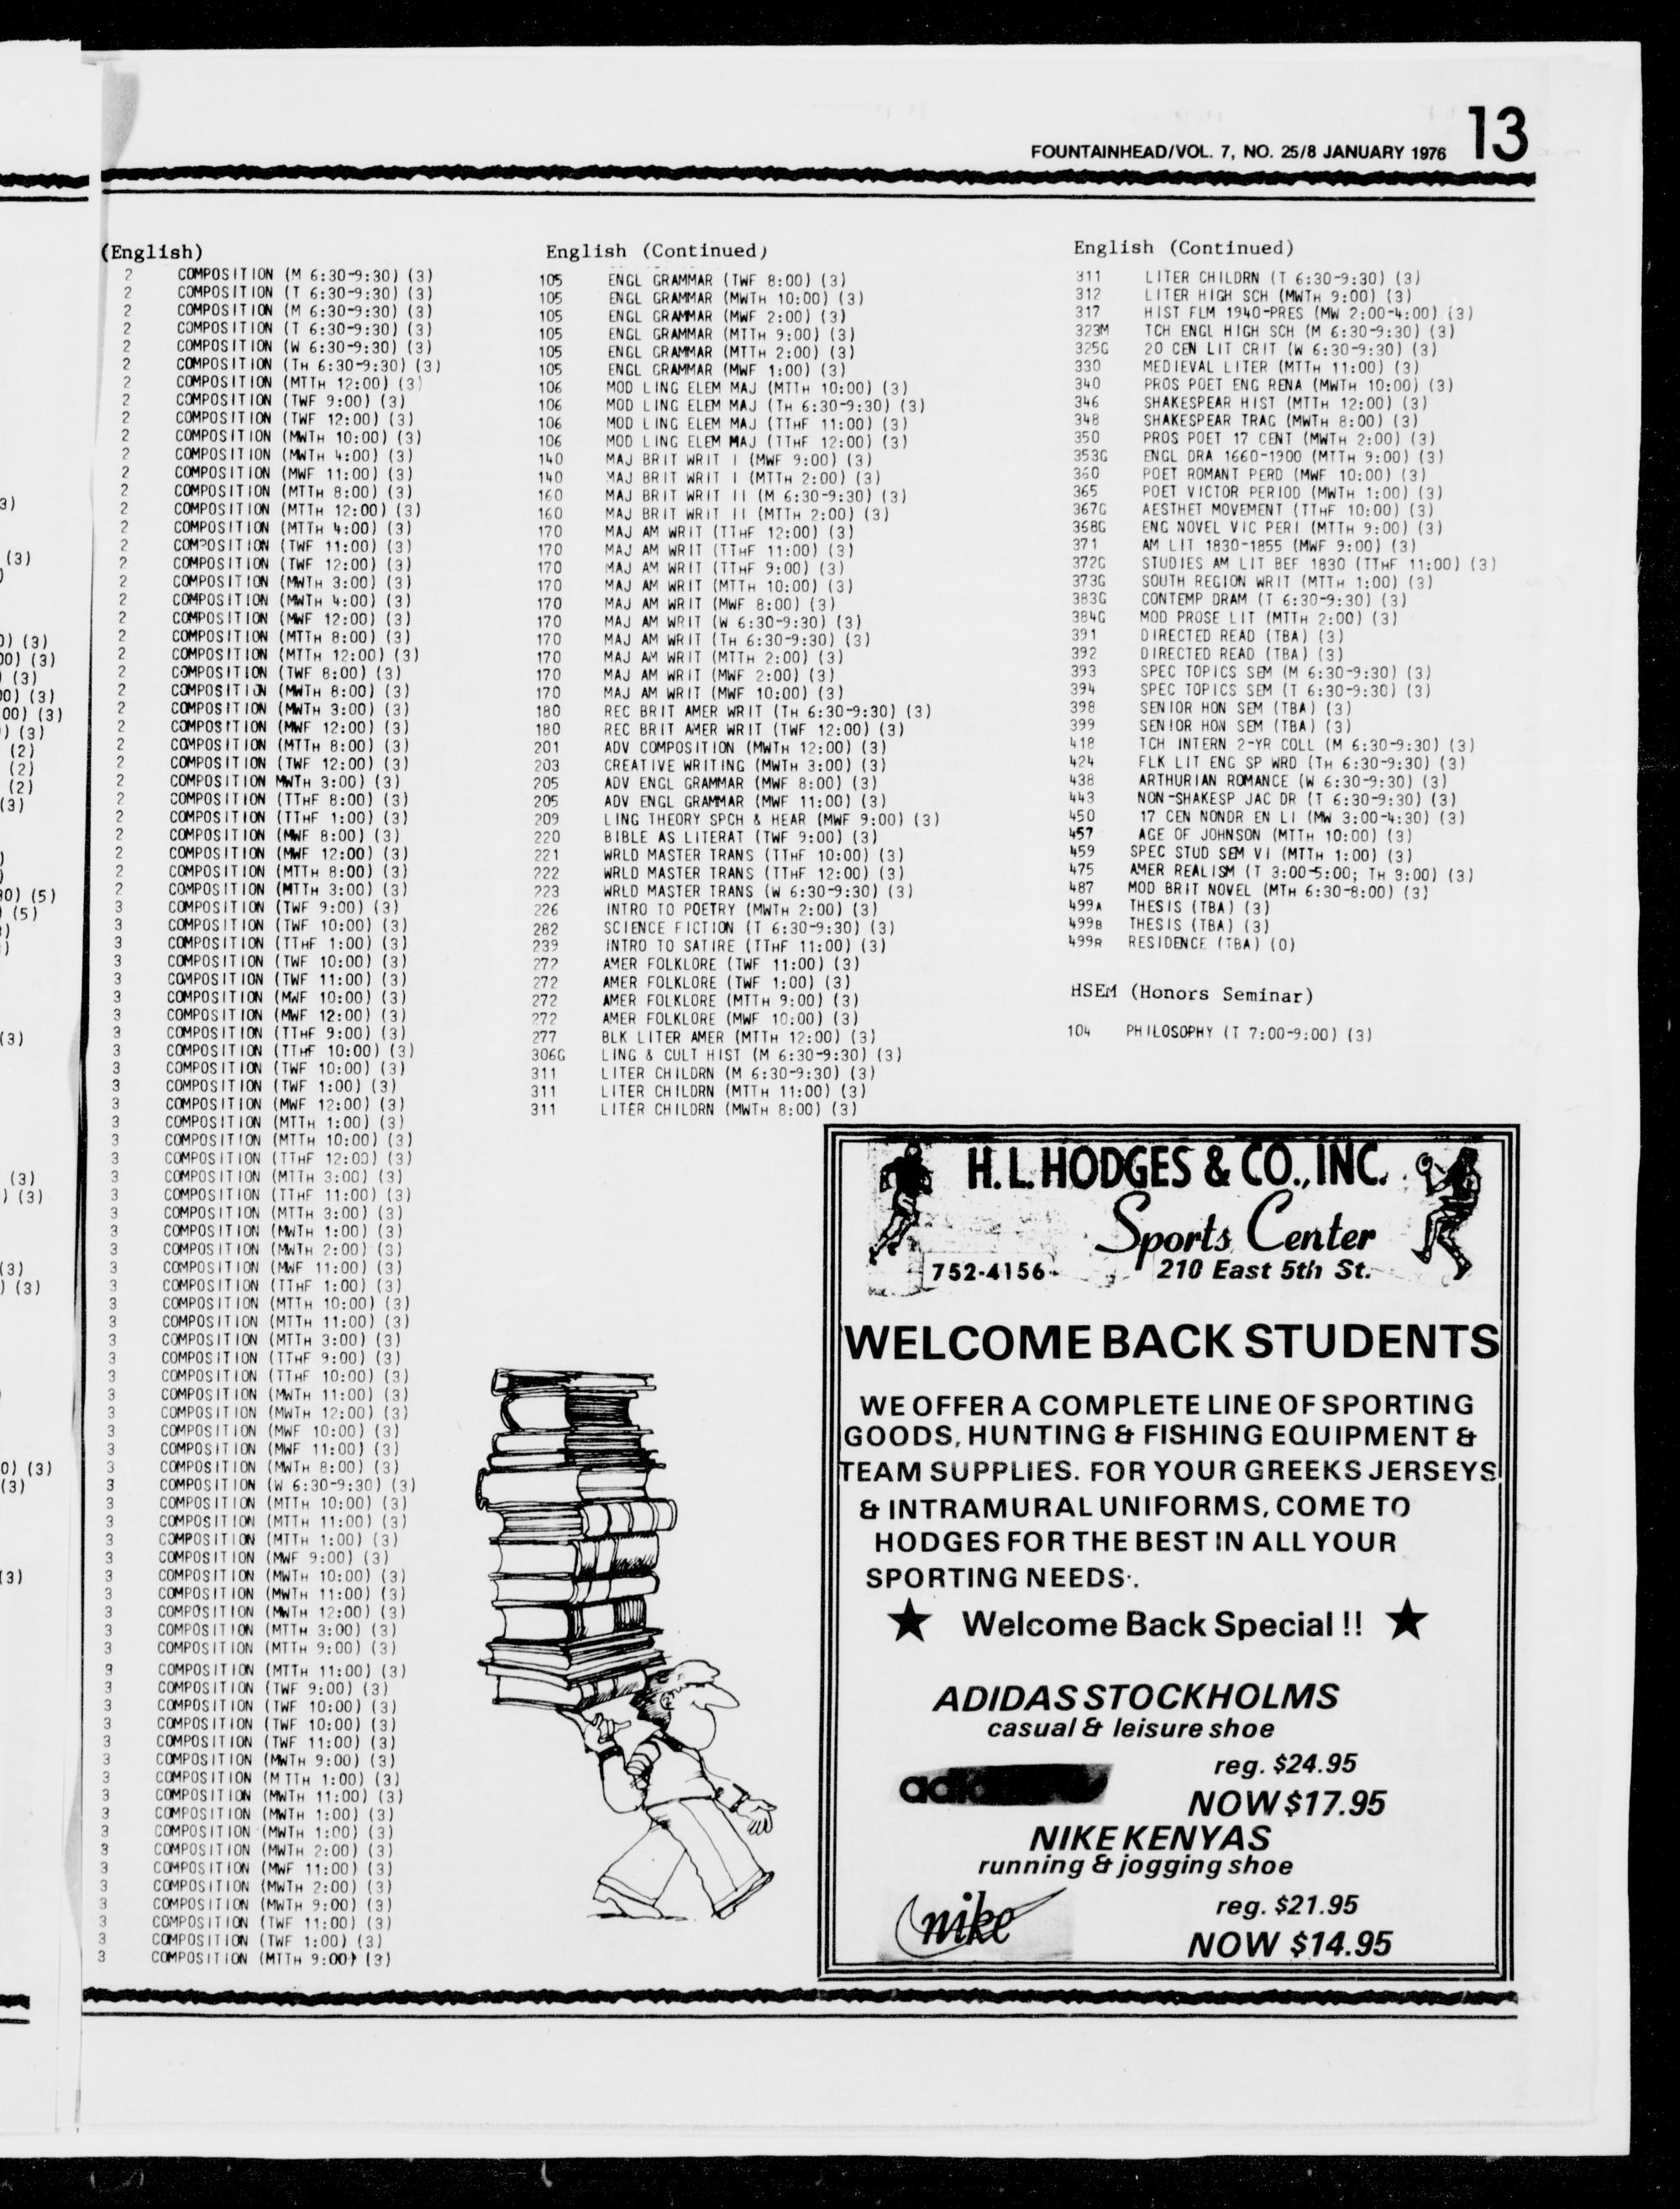 FOUNTAINHEAD/VOL. 7, NO. 25/8 JANUARY 1976 13
(English)
2 COMPOSITION (M 6:30-9:30) (3)
2 COMPOSITION (T 6:30-9:30) (3)
2 COMPOSITION (M 6:30-9:30) (3)
2 COMPOSITION (T 6:30-9:30) (3)
2 COMPOSITION (W 6:30-9:30) (3)
2 COMPOSITION (TH 6:30-9:30) (3)
2 COMPOSITION (MTTH 12:00) (3)
2 COMPOSITION (TWF 9:00) (3)
2 COMPOSITION (TWF 12:00) (3)
2 COMPOSITION (MWTH 10:00) (3)
2 COMPOSITION (MWTH 4:00) (3)
2 COMPOSITION (MWF 11:00) (3)
2 COMPOSITION (MTTH 8:00) (3)
2 COMPOSITION (MTTH 12:00) (3)
2 COMPOSITION (MTTH 4:00) (3)
2 COMPOSITION (TWF 11:00) (3)
2 COMPOSITION (TWF 12:00) (3)
2 COMPOSITION (MWTH 3:00) (3)
2 COMPOSITION (MWTH 4:00) (3)
2 COMPOSITION (MWF 12:00) (3)
2 COMPOSITION (MTTH 8:00) (3)
2 COMPOSITION (MTTH 12:00) (3)
2 COMPOSITION (TWF 8:00) (3)
2 COMPOSITION (MWTH 8:00) (3)
2 COMPOSITION (MWTH 3:00) (3)
2 COMPOSITION (MWF 12:00) (3)
2 COMPOSITION (MTTH 8:00) (3)
2 COMPOSITION (TWF 12:00) (3)
2 COMPOSITION MWTH 3:00) (3)
2 COMPOSITION (TTHF 8:00) (3)
2 COMPOSITION (TTHF 1:00) (3)
2 COMPOSITION (MWF 8:00) (3)
2 COMPOSITION (MWF 12:00) (3)
2 COMPOSITION (MTTH 8:00) (3)
2 COMPOSITION (MTTH 3:00) (3)
3 COMPOSITION (TWF 9:00) (3)
3 COMPOSITION (TWF 10:00) (3)
3 COMPOSITION (TTHF 1:00) (3)
3 COMPOSITION (TWF 10:00) (3)
3 COMPOSITION (TWF 11:00) (3)
3 COMPOSITION (MWF 10:00) (3)
3 COMPOSITION (MWF 12:00) (3)
3 COMPOSITION (TTHF 9:00) (3)
3 COMPOSITION (TTHF 10:00) (3)
3 COMPOSITION (TWF 10:00) (3)
3 COMPOSITION (TWF 1:00) (3)
3 COMPOSITION (MWF 12:00) (3)
3 COMPOSITION (MTTH 1:00) (3)
3 COMPOSITION (MTTH 10:00) (3)
3 COMPOSITION (TTHF 12:00) (3)
3 COMPOSITION (MTTH 3:00) (3)
3 COMPOSITION (TTHF 11:00) (3)
3 COMPOSITION (MTTH 3:00) (3)
3 COMPOSITION (MWTH 1:00) (3)
3 COMPOSITION (MWTH 2:00) (3)
3 COMPOSITION (MWF 11:00) (3)
3 COMPOSITION (TTHF 1:00) (3)
3 COMPOSITION (MTTH 10:00) (3)
3 COMPOSITION (MTTH 11:00) (3)
3 COMPOSITION (MTTH 3:00) (3)
3 COMPOSITION (TTHF 9:00) (3)
3 COMPOSITION (TTHF 10:00) (3)
3 COMPOSITION (MWTH 11:00) (3)
3 COMPOSITION (MWTH 12:00) (3)
3 COMPOSITION (MWF 10:00) (3)
3 COMPOSITION (MWF 11:00) (3)
3 COMPOSITION (MWTH 8:00) (3)
3 COMPOSITION (W 6:30-9:30) (3)
3 COMPOSITION (MTTH 10:00) (3)
3 COMPOSITION (MTTH 11:00) (3)
3 COMPOSITION (MTTH 1:00) (3)
3 COMPOSITION (MWF 9:00) (3)
3 COMPOSITION (MWTH 10:00) (3)
3 COMPOSITION (MWTH 11:00) (3)
3 COMPOSITION (MWTH 12:00) (3)
3 COMPOSITION (MTTH 3:00) (3)
3 COMPOSITION (MTTH 9:00) (3)
3 COMPOSITION (MTTH 11:00) (3)
3 COMPOSITION (TWF 9:00) (3)
3 COMPOSITION (TWF 10:00) (3)
3 COMPOSITION (TWF 10:00) (3)
3 COMPOSITION (TWF 11:00) (3)
3 COMPOSITION (MWTH 9:00) (3)
3 COMPOSITION (MTTH 1:00) (3)
3 COMPOSITION (MWTH 11:00) (3)
3 COMPOSITION (MWTH 1:00) (3)
3 COMPOSITION (MWTH 1:00) (3)
3 COMPOSITION (MWTH 2:00) (3)
3 COMPOSITION (MWF 11:00) (3)
3 COMPOSITION (MWTH 2:00) (3)
3 COMPOSITION (MWTH 9:00) (3)
3 COMPOSITION (TWF 11:00) (3)
3 COMPOSITION (TWF 1:00) (3)
3 COMPOSITION (MTTH 9:00) (3)
English (Continued)
105 ENGL GRAMMAR (TWF 8:00) (3)
105 ENGL GRAMMAR (MWTH 10:00) (3)
105 ENGL GRAMMAR (MWF 2:00) (3)
105 ENGL GRAMMAR (MTTH 9:00) (3)
105 ENGL GRAMMAR (MTTH 2:00) (3)
105 ENGL GRAMMAR (MWF 1:00) (3)
106 MOD LING ELEM MAJ (MTTH 10:00) (3)
106 MOD LING ELEM MAJ (TH 6:30-9:30) (3)
106 MOD LING ELEM MAJ (TTHF 11:00) (3)
106 MOD LING ELEM MAJ (TTHF 12:00) (3)
140 MAJ BRIT WRIT I (MWF 9:00) (3)
140 MAJ BRIT WRIT I (MTTH 2:00) (3)
160 MAJ BRIT WRIT II (M 6:30-9:30) (3)
160 MAJ BRIT WRIT II (MTTH 2:00) (3)
170 MAJ AM WRIT (TTHF 12:00) (3)
170 MAJ AM WRIT (TTHF 11:00) (3)
170 MAJ AM WRIT (TTHF 9:00) (3)
170 MAJ AM WRIT (MTTH 10:00) (3)
170 MAJ AM WRIT (MWF 8:00) (3)
170 MAJ AM WRIT (W 6:30-9:30) (3)
170 MAJ AM WRIT (TH 6:30-9:30) (3)
170 MAJ AM WRIT (MTTH 2:00) (3)
170 MAJ AM WRIT (MWF 2:00) (3)
170 MAJ AM WRIT (MWF 10:00) (3)
180 REC BRIT AMER WRIT (TH 6:30-9:30) (3)
180 REC BRIT AMER WRIT (TWF 12:00) (3)
201 ADV COMPOSITION (MWTH 12:00) (3)
203 CREATIVE WRITING (MWTH 3:00) (3)
205 ADV ENGL GRAMMAR (MWF 8:00) (3)
205 ADV ENGL GRAMMAR (MWF 11:00) (3)
209 LING THEORY SPCH & HEAR (MWF 9:00) (3)
220 BIBLE AS LITERAT (TWF 9:00) (3)
221 WRLD MASTER TRANS (TTHF 10:00) (3)
222 WRLD MASTER TRANS (TTHF 12:00) (3)
223 WRLD MASTER TRANS (W 6:30-9:30) (3)
226 INTRO TO POETRY (MWTH 2:00) (3)
282 SCIENCE FICTION (T 6:30-9:30) (3)
239 INTRO TO SATIRE (TTHF 11:00) (3)
272 AMER FOLKLORE (TWF 11:00) (3)
272 AMER FOLKLORE (TWF 1:00) (3)
272 AMER FOLKLORE (MTTH 9:00) (3)
272 AMER FOLKLORE (MWF 10:00) (3)
277 BLK LITER AMER (MTTH 12:00) (3)
306G LING & CULT HIST (M 6:30-9:30) (3)
311 LITER CHILDRN (M 6:30-9:30) (3)
311 LITER CHILDRN (MTTH 11:00) (3)
311 LITER CHILDRN (MWTH 8:00) (3)
English (Continued)
311 LITER CHILDRN (T 6:30-9:30) (3)
312 LITER HIGH SCH (MWTH 9:00) (3)
317 HIST FLM 1940-PRES (MW 2:00-4:00) (3)
323M TCH ENGL HIGH SCH (M 6:30-9:30) (3)
325G 20 CEN LIT CRIT (W 6:30-9:30) (3)
330 MEDIEVAL LITER (MTTH 11:00) (3)
340 PROS POET ENG RENA (MWTH 10:00) (3)
346 SHAKESPEAR HIST (MTTH 12:00) (3)
348 SHAKESPEAR TRAG (MWTH 8:00) (3)
350 PROS POET 17 CENT (MWTH 2:00) (3)
353G ENGL DRA 1660-1900 (MTTH 9:00) (3)
360 POET ROMANT PERD (MWF 10:00) (3)
365 POET VICTOR PERIOD (MWTH 1:00) (3)
367G AESTHET MOVEMENT (TTHF 10:00) (3)
368G ENG NOVEL VIC PERI (MTTH 9:00) (3)
371 AM LIT 1830-1855 (MWF 9:00) (3)
372G STUDIES AM LIT BEF 1830 (TTHF 11:00) (3)
373G SOUTH REGION WRIT (MTTH 1:00) (3)
383G CONTEMP DRAM (T 6:30-9:30) (3)
384G MOD PROSE LIT (MTTH 2:00) (3)
391 DIRECTED READ (TBA) (3)
392 DIRECTED READ (TBA) (3)
393 SPEC TOPICS SEM (M 6:30-9:30) (3)
394 SPEC TOPICS SEM (T 6:30-9:30) (3)
398 SENIOR HON SEM (TBA) (3)
399 SENIOR HON SEM (TBA) (3)
418 TCH INTERN 2-YR COLL (M 6:30-9:30) (3)
424 FLK LIT ENG SP WRD (TH 6:30-9:30) (3)
438 ARTHURIAN ROMANCE (W 6:30-9:30) (3)
443 NON-SHAKESP JAC DR (T 6:30-9:30) (3)
450 17 CEN NONDR EN LI (MW 3:00-4:30) (3)
457 AGE OF JOHNSON (MTTH 10:00) (3)
459 SPEC STUD SEM VI (MTTH 1:00) (3)
475 AMER REALISM (T 3:00-5:00; TH 3:00) (3)
487 MOD BRIT NOVEL (MTH 6:30-8:00) (3)
499A THESIS (TBA) (3)
499B THESIS (TBA) (3)
499R RESIDENCE (TBA) (0)
HSEM (Honors Seminar)
104 PHILOSOPHY (T 7:00-9:00) (3)
H. L. HODGES & CO., INC.
Sports Center
752-4156 210 East 5th St.
WELCOME BACK STUDENTS
WE OFFER A COMPLETE LINE OF SPORTING
GOODS, HUNTING & FISHING EQUIPMENT &
TEAM SUPPLIES. FOR YOUR GREEKS JERSEYS
& INTRAMURAL UNIFORMS, COME TO
HODGES FOR THE BEST IN ALL YOUR
SPORTING NEEDS.
★ Welcome Back Special !! ★
ADIDAS STOCKHOLMS
casual & leisure shoe
reg. $24.95
NOW $17.95
NIKE KENYAS
running & jogging shoe
nike
reg. $21.95
NOW $14.95